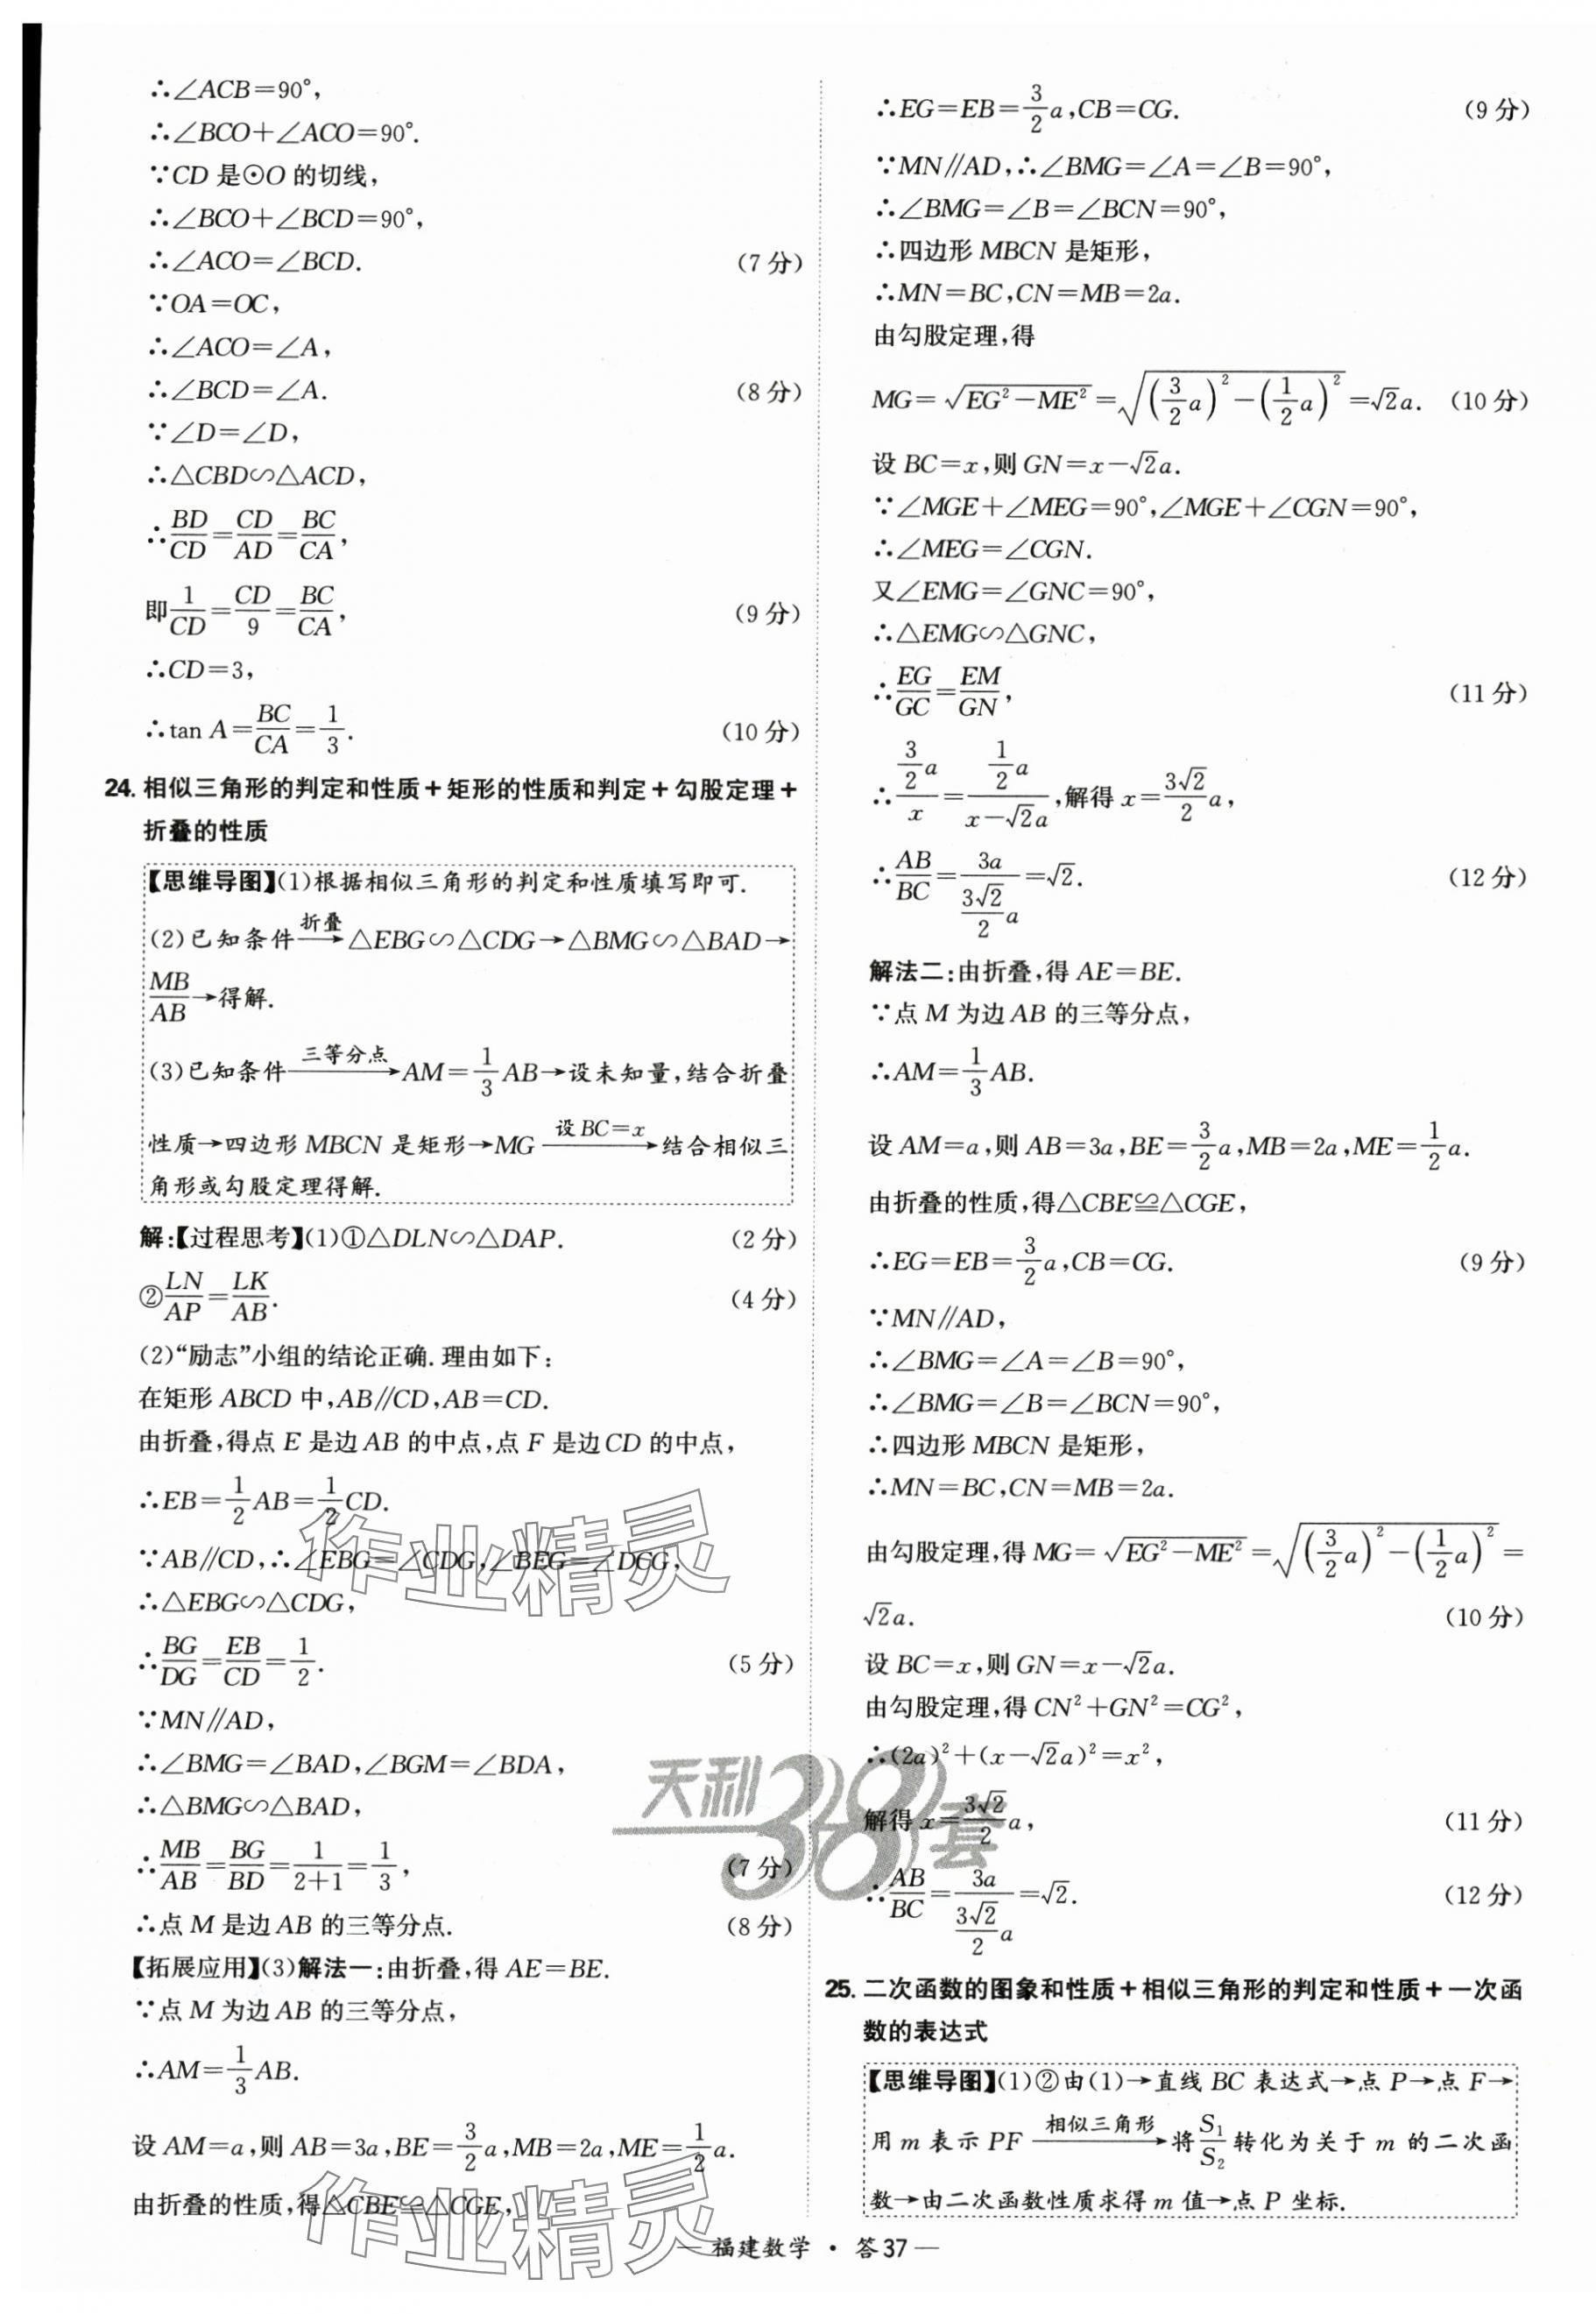 ∴∠ACB=90°,
∴∠BCO+∠ACO=90°.
∵CD 是⊙O 的切线,
∴∠BCO+∠BCD=90°,
∴∠ACO=∠BCD. (7 分)
∵OA=OC,
∴∠ACO=∠A,
∴∠BCD=∠A. (8 分)
∵∠D=∠D,
∴△CBD∽△ACD,
∴BD/CD=CD/AD=BC/CA,
即1/CD=CD/9=BC/CA, (9 分)
∴CD=3,
∴tan A=BC/CA=1/3. (10 分)
24. 相似三角形的判定和性质+矩形的性质和判定+勾股定理+
折叠的性质
【思维导图】(1)根据相似三角形的判定和性质填写即可.
(2)已知条件 折叠→ △EBG∽△CDG→△BMG∽△BAD→
MB/AB→得解.
(3)已知条件 三等分点→ AM=1/3 AB→设未知量,结合折叠
性质→四边形 MBCN 是矩形→MG 设 BC=x→ 结合相似三
角形或勾股定理得解.
解:【过程思考】(1)①△DLN∽△DAP. (2 分)
②LN/AP=LK/AB. (4 分)
(2)“励志”小组的结论正确. 理由如下:
在矩形 ABCD 中,AB∥CD,AB=CD.
由折叠,得点 E 是边 AB 的中点,点 F 是边 CD 的中点,
∴EB=1/2 AB=1/2 CD.
∵AB∥CD,∴∠EBG=∠CDG,∠BEG=∠DCG,
∴△EBG∽△CDG,
∴BG/DG=EB/CD=1/2. (5 分)
∵MN∥AD,
∴∠BMG=∠BAD,∠BGM=∠BDA,
∴△BMG∽△BAD,
∴MB/AB=BG/BD=1/(2+1)=1/3, (7 分)
∴点 M 是边 AB 的三等分点. (8 分)
【拓展应用】(3)解法一:由折叠,得 AE=BE.
∵点 M 为边 AB 的三等分点,
∴AM=1/3 AB.
设 AM=a,则 AB=3a,BE=3/2 a,MB=2a,ME=1/2 a.
由折叠的性质,得△CBE∽△CGE,
∴EG=EB=3/2 a,CB=CG. (9 分)
∵MN∥AD,∴∠BMG=∠A=∠B=90°,
∴∠BMG=∠B=∠BCN=90°,
∴四边形 MBCN 是矩形,
∴MN=BC,CN=MB=2a.
由勾股定理,得
MG=√(EG²-ME²)=√((3/2 a)²-(1/2 a)²)=√2a. (10 分)
设 BC=x,则 GN=x-√2a.
∵∠MGE+∠MEG=90°,∠MGE+∠CGN=90°,
∴∠MEG=∠CGN.
又∠EMG=∠GNC=90°,
∴△EMG∽△GNC,
∴EG/GC=EM/GN, (11 分)
∴(3/2 a)/x=(1/2 a)/(x-√2a),解得 x=3√2/2 a,
∴AB/BC=3a/(3√2/2 a)=√2. (12 分)
解法二:由折叠,得 AE=BE.
∵点 M 为边 AB 的三等分点,
∴AM=1/3 AB.
设 AM=a,则 AB=3a,BE=3/2 a,MB=2a,ME=1/2 a.
由折叠的性质,得△CBE≌△CGE,
∴EG=EB=3/2 a,CB=CG. (9 分)
∵MN∥AD,
∴∠BMG=∠A=∠B=90°,
∴∠BMG=∠B=∠BCN=90°,
∴四边形 MBCN 是矩形,
∴MN=BC,CN=MB=2a.
由勾股定理,得 MG=√(EG²-ME²)=√((3/2 a)²-(1/2 a)²)=
√2a. (10 分)
设 BC=x,则 GN=x-√2a.
由勾股定理,得 CN²+GN²=CG²,
∴(2a)²+(x-√2a)²=x²,
解得 x=3√2/2 a, (11 分)
∴AB/BC=3a/(3√2/2 a)=√2. (12 分)
25. 二次函数的图象和性质+相似三角形的判定和性质+一次函
数的表达式
【思维导图】(1)②由(1)→直线 BC 表达式→点 P→点 F→
用 m 表示 PF 相似三角形→ 将S₁/S₂转化为关于 m 的二次函
数→由二次函数性质求得 m 值→点 P 坐标.
— 福建数学 · 答37 —
作业精灵
天利38套
作业精灵